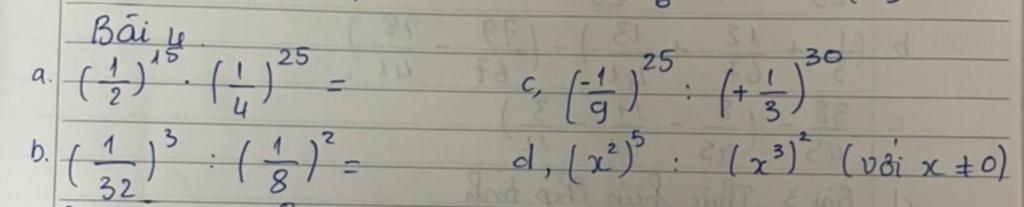 Bài 4.
a. (1/2)^15 . (1/4)^25 = c, (-1/9)^25 : (+1/3)^30
b. (1/32)^3 : (1/8)^2 = d, (x^2)^5 : (x^3)^2 (với x ≠ 0)